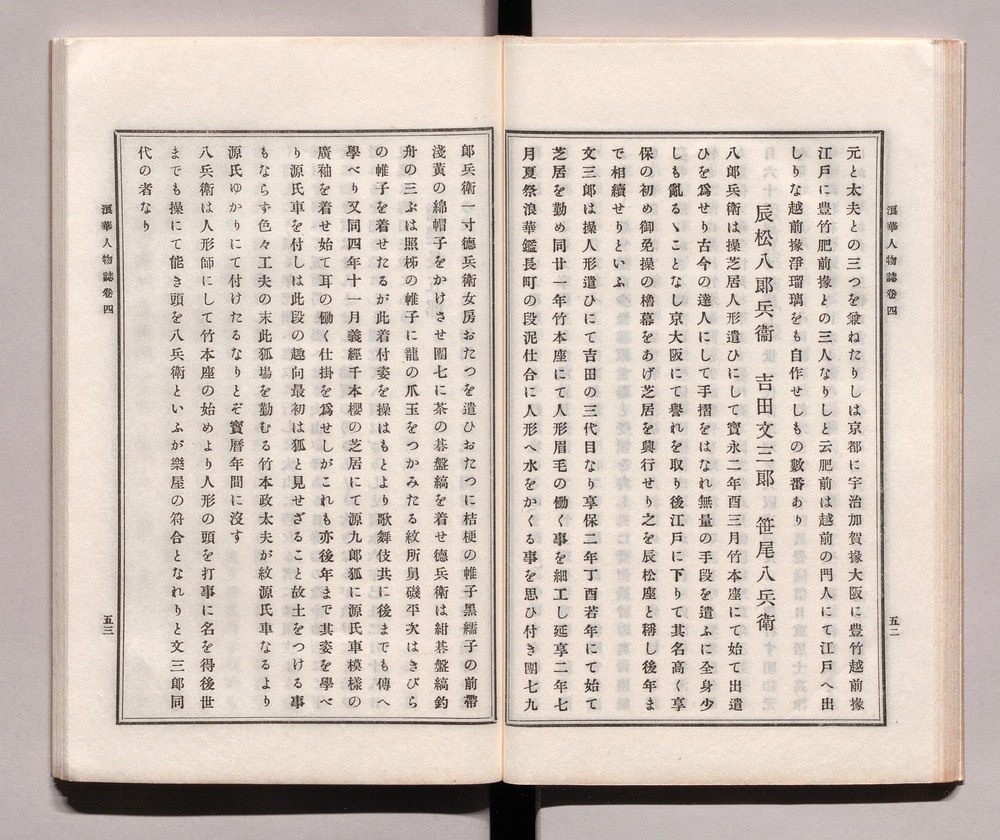 浪華人物誌卷四
五二
元と太夫との三つを兼ねたりしは京都に宇治加賀掾大阪に豊竹越前掾
江戸に豊竹肥前掾との三人なりしと云肥前は越前の門人にて江戸へ出
しりな越前掾淨瑠璃をも自作せしもの數番あり
辰松八郎兵衞 吉田文三郎 笹尾八兵衞
八郎兵衞は操芝居人形遣ひにして寶永二年酉三月竹本座にて始て出遣
ひを爲せり古今の達人にして手摺をはなれ無量の手段を遣ふに全身少
しも亂るヽことなし京大阪にて譽れを取り後江戸に下りて其名高く享
保の初め御免操の櫓幕をあげ芝居を興行せり之を辰松座と稱し後年ま
で相續せりといふ
文三郎は操人形遣ひにて吉田の三代目なり享保二年丁酉若年にて始て
芝居を勤め同廿一年竹本座にて人形眉毛の働く事を細工し延享二年七
月夏祭浪華鑑長町の段泥仕合に人形へ水をかくる事を思ひ付き團七九
郎兵衞一寸德兵衞女房おたつを遣ひおたつに桔梗の帷子黑繻子の前帶
淺黃の綿帽子をかけさせ團七に茶の碁盤縞を着せ德兵衞は紺碁盤縞釣
舟の三ぶは照柹の帷子に龍の爪玉をつかみたる紋所舅磯平次はきびら
の帷子を着せたるが此着付姿を操はもとより歌舞伎共に後までも傳へ
學べり又同四年十一月義經千本櫻の芝居にて源九郎狐に源氏車模樣の
廣袖を着せ始て耳の働く仕掛を爲せしがこれも亦後年まで其姿を學べ
り源氏車を付しは此段の趣向最初は狐と見せざること故土をつける事
もならず色々工夫の末此狐場を勤むる竹本政太夫が紋源氏車なるより
源氏ゆかりにて付けたるなりとぞ寶曆年間に沒す
八兵衞は人形師にして竹本座の始めより人形の頭を打事に名を得後世
までも操にて能き頭を八兵衞といふが樂屋の符合となれりと文三郎同
代の者なり
浪華人物誌卷四
五三